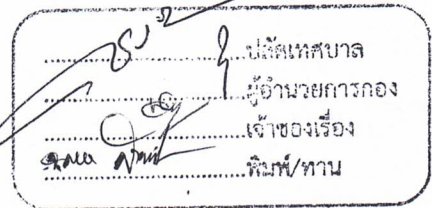 ปลัดเทศบาล
ผู้อำนวยการกอง
เจ้าของเรื่อง
พิมพ์/ทาน